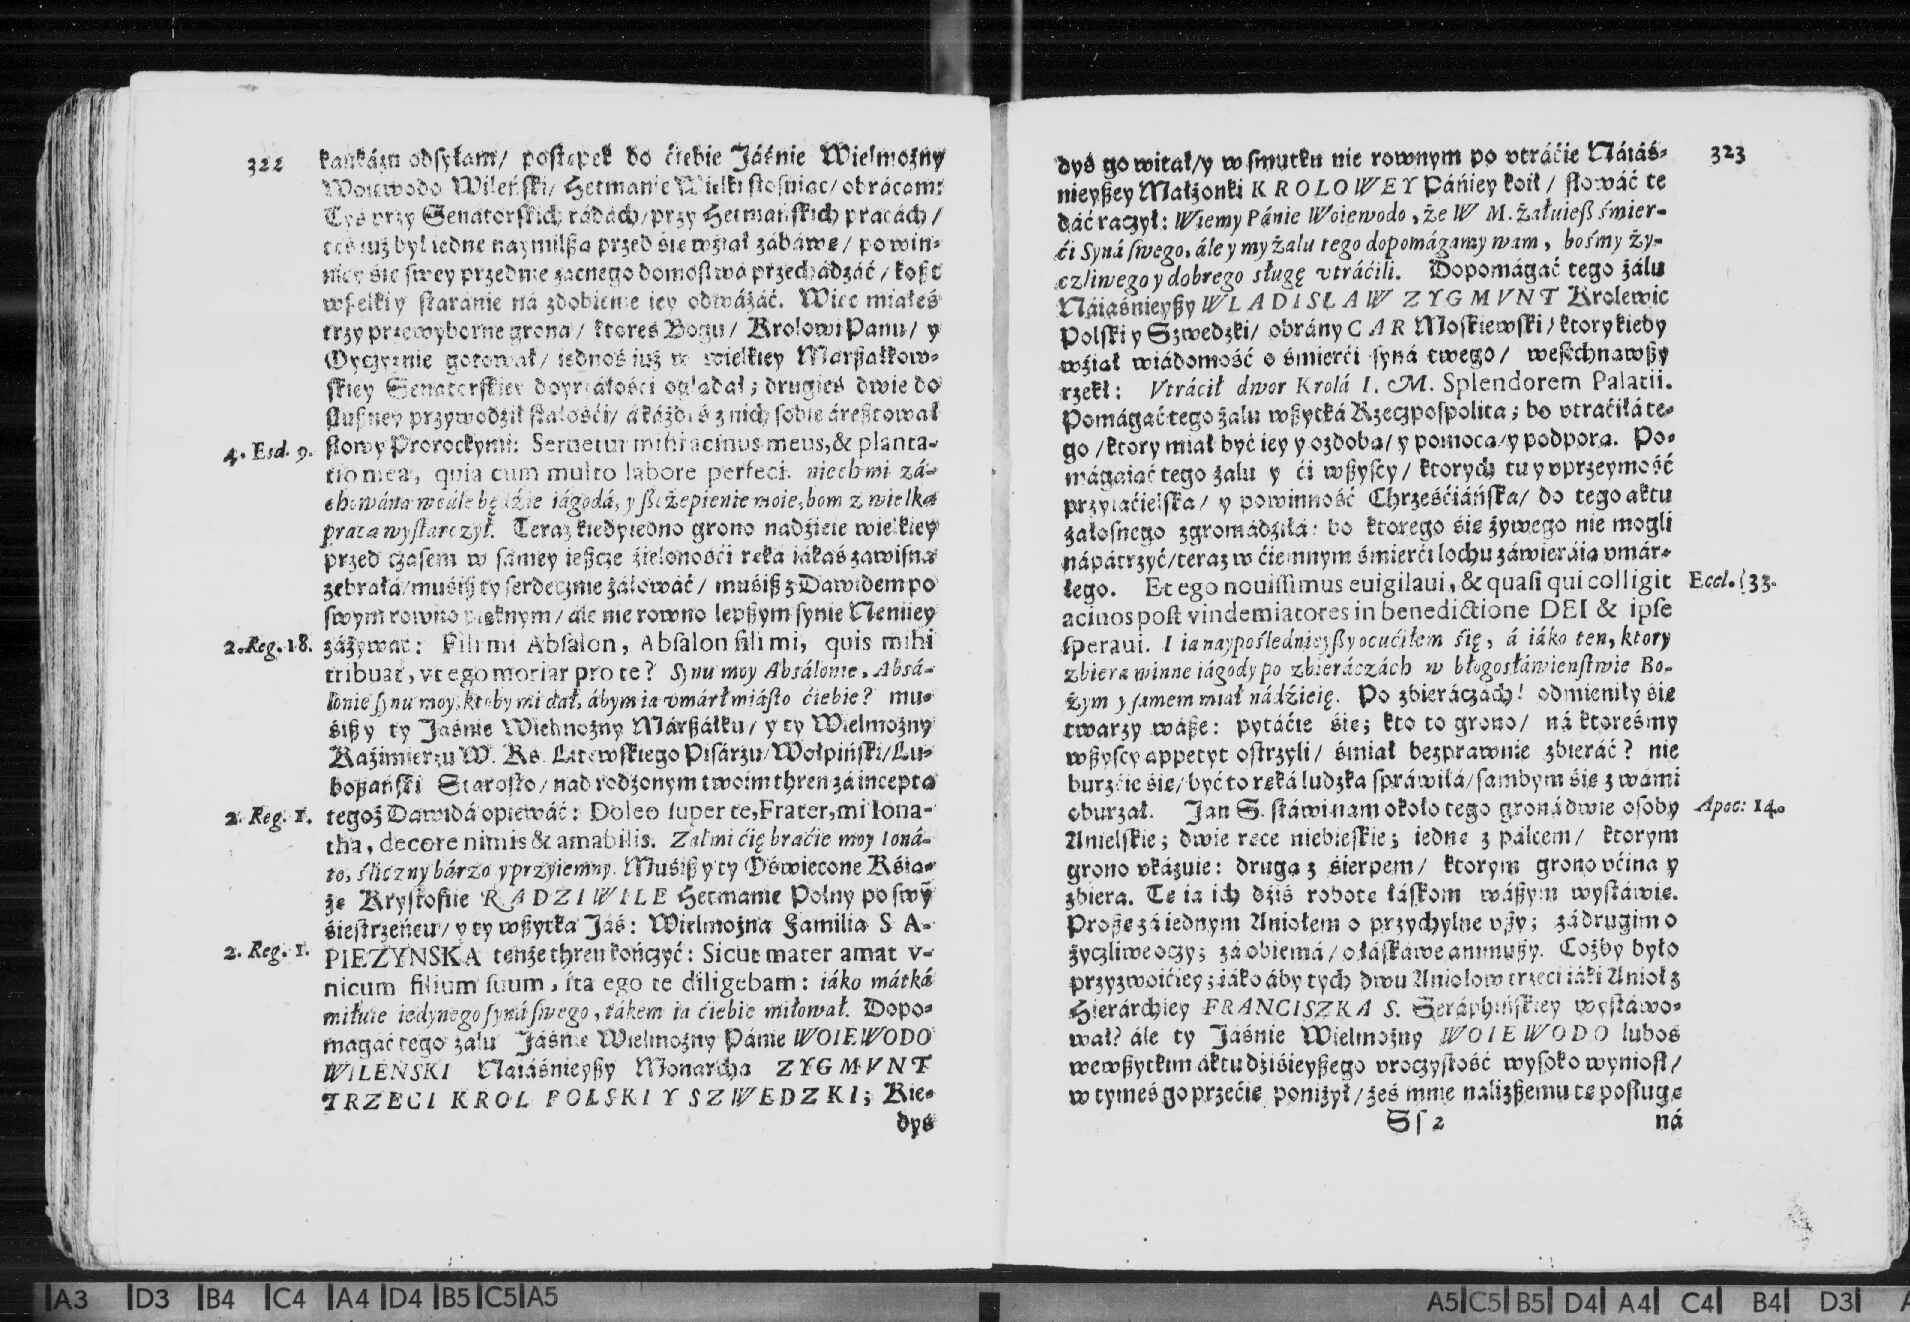 322
kaukázu odsyłam/ postępek do ćiebie Jáśnie Wielmożny
Woiewodo Wileński/ Hetmanie Wielki stosuiąc/ obrácam:
Tyś przy Senatorskich rádách/ przy Hetmáńskich pracách/
też iuż był iednę naymilßą przed się wźiął zábáwę/ powin-
nicy się swey przednie zacnego domostwá przechádzáć/ koßt
wßelki y stáránie ná zdobienie iey odważáć. Więc miałeś
trzy przewyborne grona/ ktoreś Bogu/ Krolowi Panu/ y
Oyczyznie gotował/ iednoś iuż w wielkiey Marßałkow-
skiey Senatorskiey doyrzáłości oglądał; drugieś dwie do
słußney przywodził stałośći/ á káżdeś z nich sobie áresztował
4. Esd. 9.
słowy Prorockymi: Seruetur mihi acinus meus, & planta-
tio mea, quia cum multo labore perfeci. niech mi zá-
chowána wcále będźie iágodá, y ßczepienie moie, bom z wielką
pracą wystarczył. Teraz kiedy iedno grono nadźieie wielkiey
przed czasem w sámey ießcze źielonośći ręká iákaś zawisna
zebráłá/ muśiß ty serdecznie żáłowáć/ muśiß z Dawidem po
swym rowno pięknym/ ale nie rowno lepßym synie Neniiey
2. Reg. 18.
záżywáć: Fili mi Absalon, Absalon fili mi, quis mihi
tribuat, vt ego moriar pro te? Synu moy Absálonie, Absá-
lonie synu moy, ktoby mi dał, ábym ia vmárł miásto ćiebie? mu-
śiß y ty Jaśnie Wielmożny Márßáłku/ y ty Wielmożny
Kaźimierzu W. Ks. Litewskiego Pisárzu/ Wołpiński/ Lu-
boßański Starosto/ nad rodzonym twoim thren zá inceptą
2. Reg. 1.
tegoż Dawidá opiewáć: Doleo super te, Frater, mi Iona-
tha, decore nimis & amabilis. Zal mi ćię braćie moy Ioná-
to, śliczny bárzo y przyiemny. Muśiß y ty Oświecone Kśią-
żę Krysztofie RADZIWILE Hetmanie Polny po swỹ
śiestrzeńcu/ y ty wßytka Jáś: Wielmożna Familia SA-
2. Reg. 1.
PIEZYNSKA tenże thren kończyć: Sicut mater amat v-
nicum filium suum, ita ego te diligebam: iáko mátká
miłuie iedynego syná swego, tákem ia ćiebie miłował. Dopo-
magáć tego żalu Jáśnie Wielmożny Pánie WOIEWODO
WILENSKI Naiáśnieyßy Monarcha ZYGMVNT
TRZECI KROL POLSKI Y SZWEDZKI; Kie-
dyś
323
dyś go witał/ y w smutku nie rownym po vtráćie Náiáś-
nieyßey Małżonki KROLOWEY Pániey koił/ słowáć te
dáć raczył: Wiemy Pánie Woiewodo, że W M. żałuieß śmier-
ći Syná swego, ále y my żalu tego dopomágamy wam, bośmy ży-
czliwego y dobrego sługę vtráćili. Dopomágáć tego żálu
Náiaśnieyßy WLADISLAW ZYGMVNT Krolewic
Polski y Szwedzki/ obrány CAR Moskiewski/ ktory kiedy
wźiął wiádomość o śmierći syná twego/ westchnąwßy
rzekł: Vtrácił dwor Krolá I. M. Splendorem Palatii.
Pomágáć tego żalu wßytká Rzeczpospolita; bo vtráćiłá te-
go/ ktory miał być iey y ozdobą/ y pomocą/ y podporą. Po-
mágáiąć tego żalu y ći wßyscy/ ktorych tu y vprzeymość
przyiaćielska/ y powinność Chrześćiáńska/ do tego aktu
żáłosnego zgromádźiłá: bo ktorego śię żywego nie mogli
nápátrzyć/ teraz w ćiemnym śmierći lochu záwieráią vmár-
łego. Et ego nouissimus euigilaui, & quasi qui colligit
Eccl. 33.
acinos post vindemiatores in benedictione DEI & ipse
speraui. I ia naypośledniejßy ocućiłem się, á iáko ten, ktory
zbiera winne iágody po zbieráczách w błogosłáwienstwie Bo-
żym y samem miał nádźieię. Po zbieráczách! odmieniły się
twarzy wáße: pytáćie śię; kto to grono/ ná ktoreśmy
wßyscy appetyt ostrzyli/ śmiał bezprawnie zbieráć? nie
burzćie śię/ być to ręká ludzka spráwiłá/ sambym śię z wámi
oburzał. Jan S. stáwi nam około tego groná dwie osoby
Apoc: 14.
Anielskie; dwie ręce niebieskie; iednę z pálcem/ ktorym
grono vkázuie: drugą z śierpem/ ktorym grono vćina y
zbiera. Tę ia ich dźiś robotę łáskom wáßym wystáwię.
Proßę zá iednym Aniołem o przychylne vßy; zá drugim o
życzliwe oczy; zá obiemá/ o łáskáwe animußy. Cożby było
przyzwoićiey; iáko áby tych dwu Aniołow trzeći iáki Anioł z
Hierárchiey FRANCISZKA S. Seráphińskiey wystáwo-
wał? ále ty Jaśnie Wielmożny WOIEWODO luboś
we wßytkim áktu dźiśieyßego vroczystość wysoko wyniosł/
w tymeś go przećię poniżył/ żeś mnie nalizßemu tę posługę
Sſ 2
ná
A3 D3 B4 C4 A4 D4 B5 C5 A5
A5 C5 B5 D4 A4 C4 B4 D3